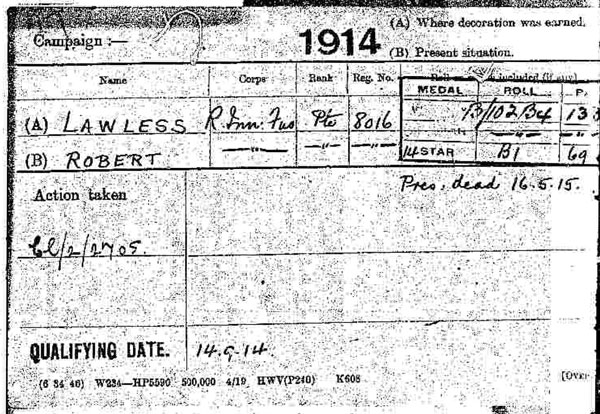 (A) Where decoration was earned.
Campaign :— 1914
(B) Present situation.
Name Corps Rank Reg. No. Roll included (if any)
MEDAL ROLL P.
(A) LAWLESS R. Inn. Fus Pte 8016 V B/102 B4 13
(B) ROBERT —„— „ —„— —„— —„— „
14 STAR B1 69
Action taken Pres. dead 16.5.15.
CL/2/2705.
QUALIFYING DATE. 14.9.14.
(6 34 46) W234—HP5590 500,000 4/19 HWV(P240) K608 [OVER